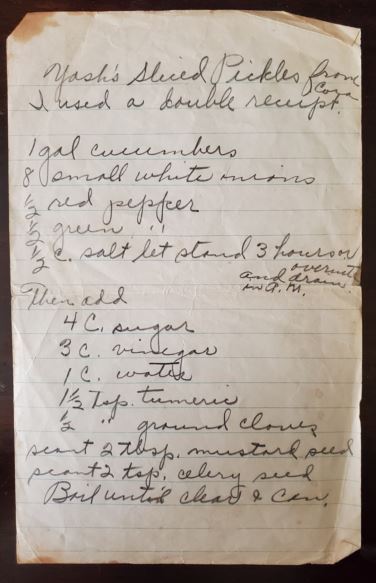 Yosh's Sliced Pickles from Cora
I used a double receipt.
1 gal cucumbers
8 small white onions
1/2 red pepper
1/2 green " "
1/2 c. salt let stand 3 hours or
overnite
and drain
in A.M.
Then add
4 C. sugar
3 c. vinegar
1 C. water
1 1/2 tsp. tumeric
1/2 " ground cloves
scant 2 tbsp. mustard seed
scant 2 tsp. celery seed
Boil until clear & can.